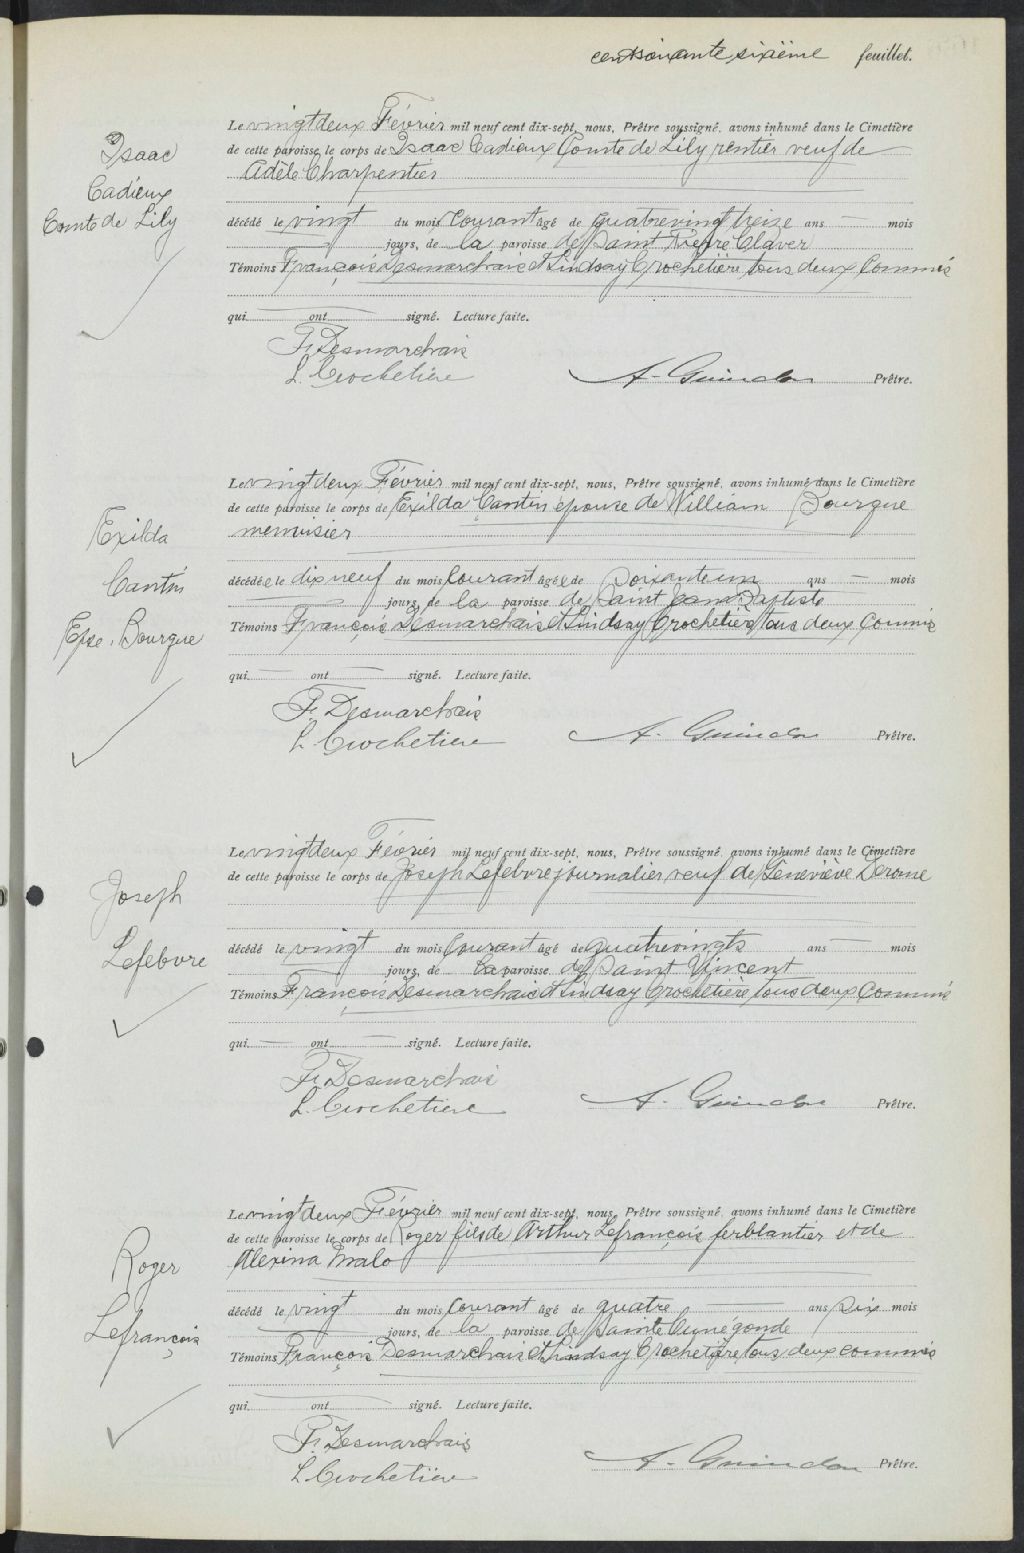 centsoixante sixième feuillet.
Isaac
Cadieux
Comte de Lily
Le vingtdeux Février mil neuf cent dix-sept, nous, Prêtre soussigné, avons inhumé dans le Cimetière
de cette paroisse le corps de Isaac Cadieux Comte de Lily rentier veuf de
Adèle Charpentier
décédé le vingt du mois Courant âgé de quatrevingt treize ans — mois
jours, de la paroisse de Saint Pierre Claver
Témoins François Desmarchais et Lindsay Crochetière tous deux Commis
qui ont signé. Lecture faite.
F. Desmarchais
L. Crochetière
A. Guindon Prêtre.
Exilda
Cantin
Epse. Bourque
Le vingtdeux Février mil neuf cent dix-sept, nous, Prêtre soussigné, avons inhumé dans le Cimetière
de cette paroisse le corps de Exilda Cantin épouse de William Bourque
menuisier
décédée le dixneuf du mois Courant âgée de Soixanteun ans — mois
jours, de la paroisse de Saint Jean Baptiste
Témoins François Desmarchais et Lindsay Crochetière tous deux Commis
qui ont signé. Lecture faite.
F. Desmarchais
L. Crochetiere
A. Guindon Prêtre.
Joseph
Lefebvre
Le vingtdeux Février mil neuf cent dix-sept, nous, Prêtre soussigné, avons inhumé dans le Cimetière
de cette paroisse le corps de Joseph Lefebvre journalier veuf de Geneviève Derome
décédé le vingt du mois Courant âgé de quatrevingts ans — mois
jours, de la paroisse de Saint Vincent
Témoins François Desmarchais et Lindsay Crochetière tous deux Commis
qui ont signé. Lecture faite.
F. Desmarchais
L. Crochetiere
A. Guindon Prêtre.
Roger
Lefrançois
Le vingtdeux Février mil neuf cent dix-sept, nous, Prêtre soussigné, avons inhumé dans le Cimetière
de cette paroisse le corps de Roger fils de Arthur Lefrançois ferblantier et de
Alexina Malo
décédé le vingt du mois Courant âgé de quatre ans Six mois
jours, de la paroisse de Sainte Cunégonde
Témoins François Desmarchais et Lindsay Crochetière tous deux commis
qui ont signé. Lecture faite.
F. Desmarchais
L. Crochetière
A. Guindon Prêtre.